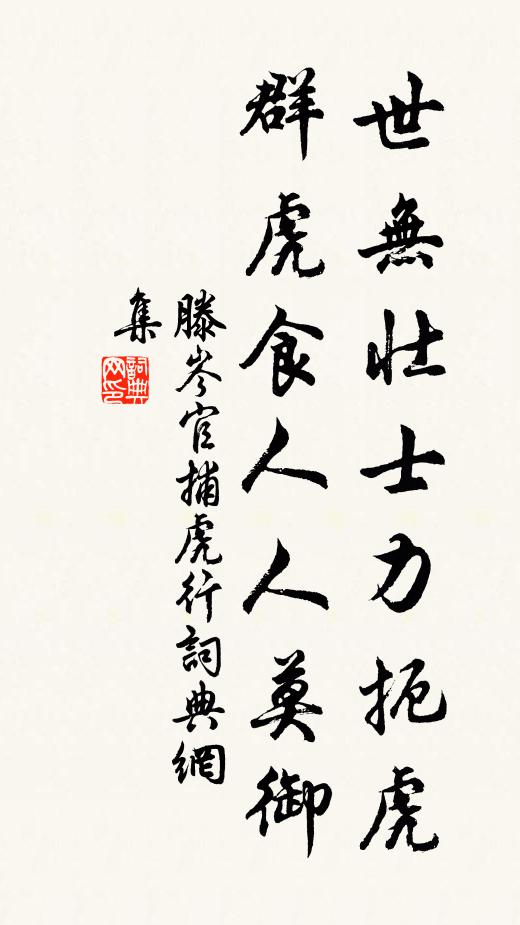 世無壯士力扼虎
群虎食人人莫御
滕岑官捕虎行詞典網
集
詞典網印